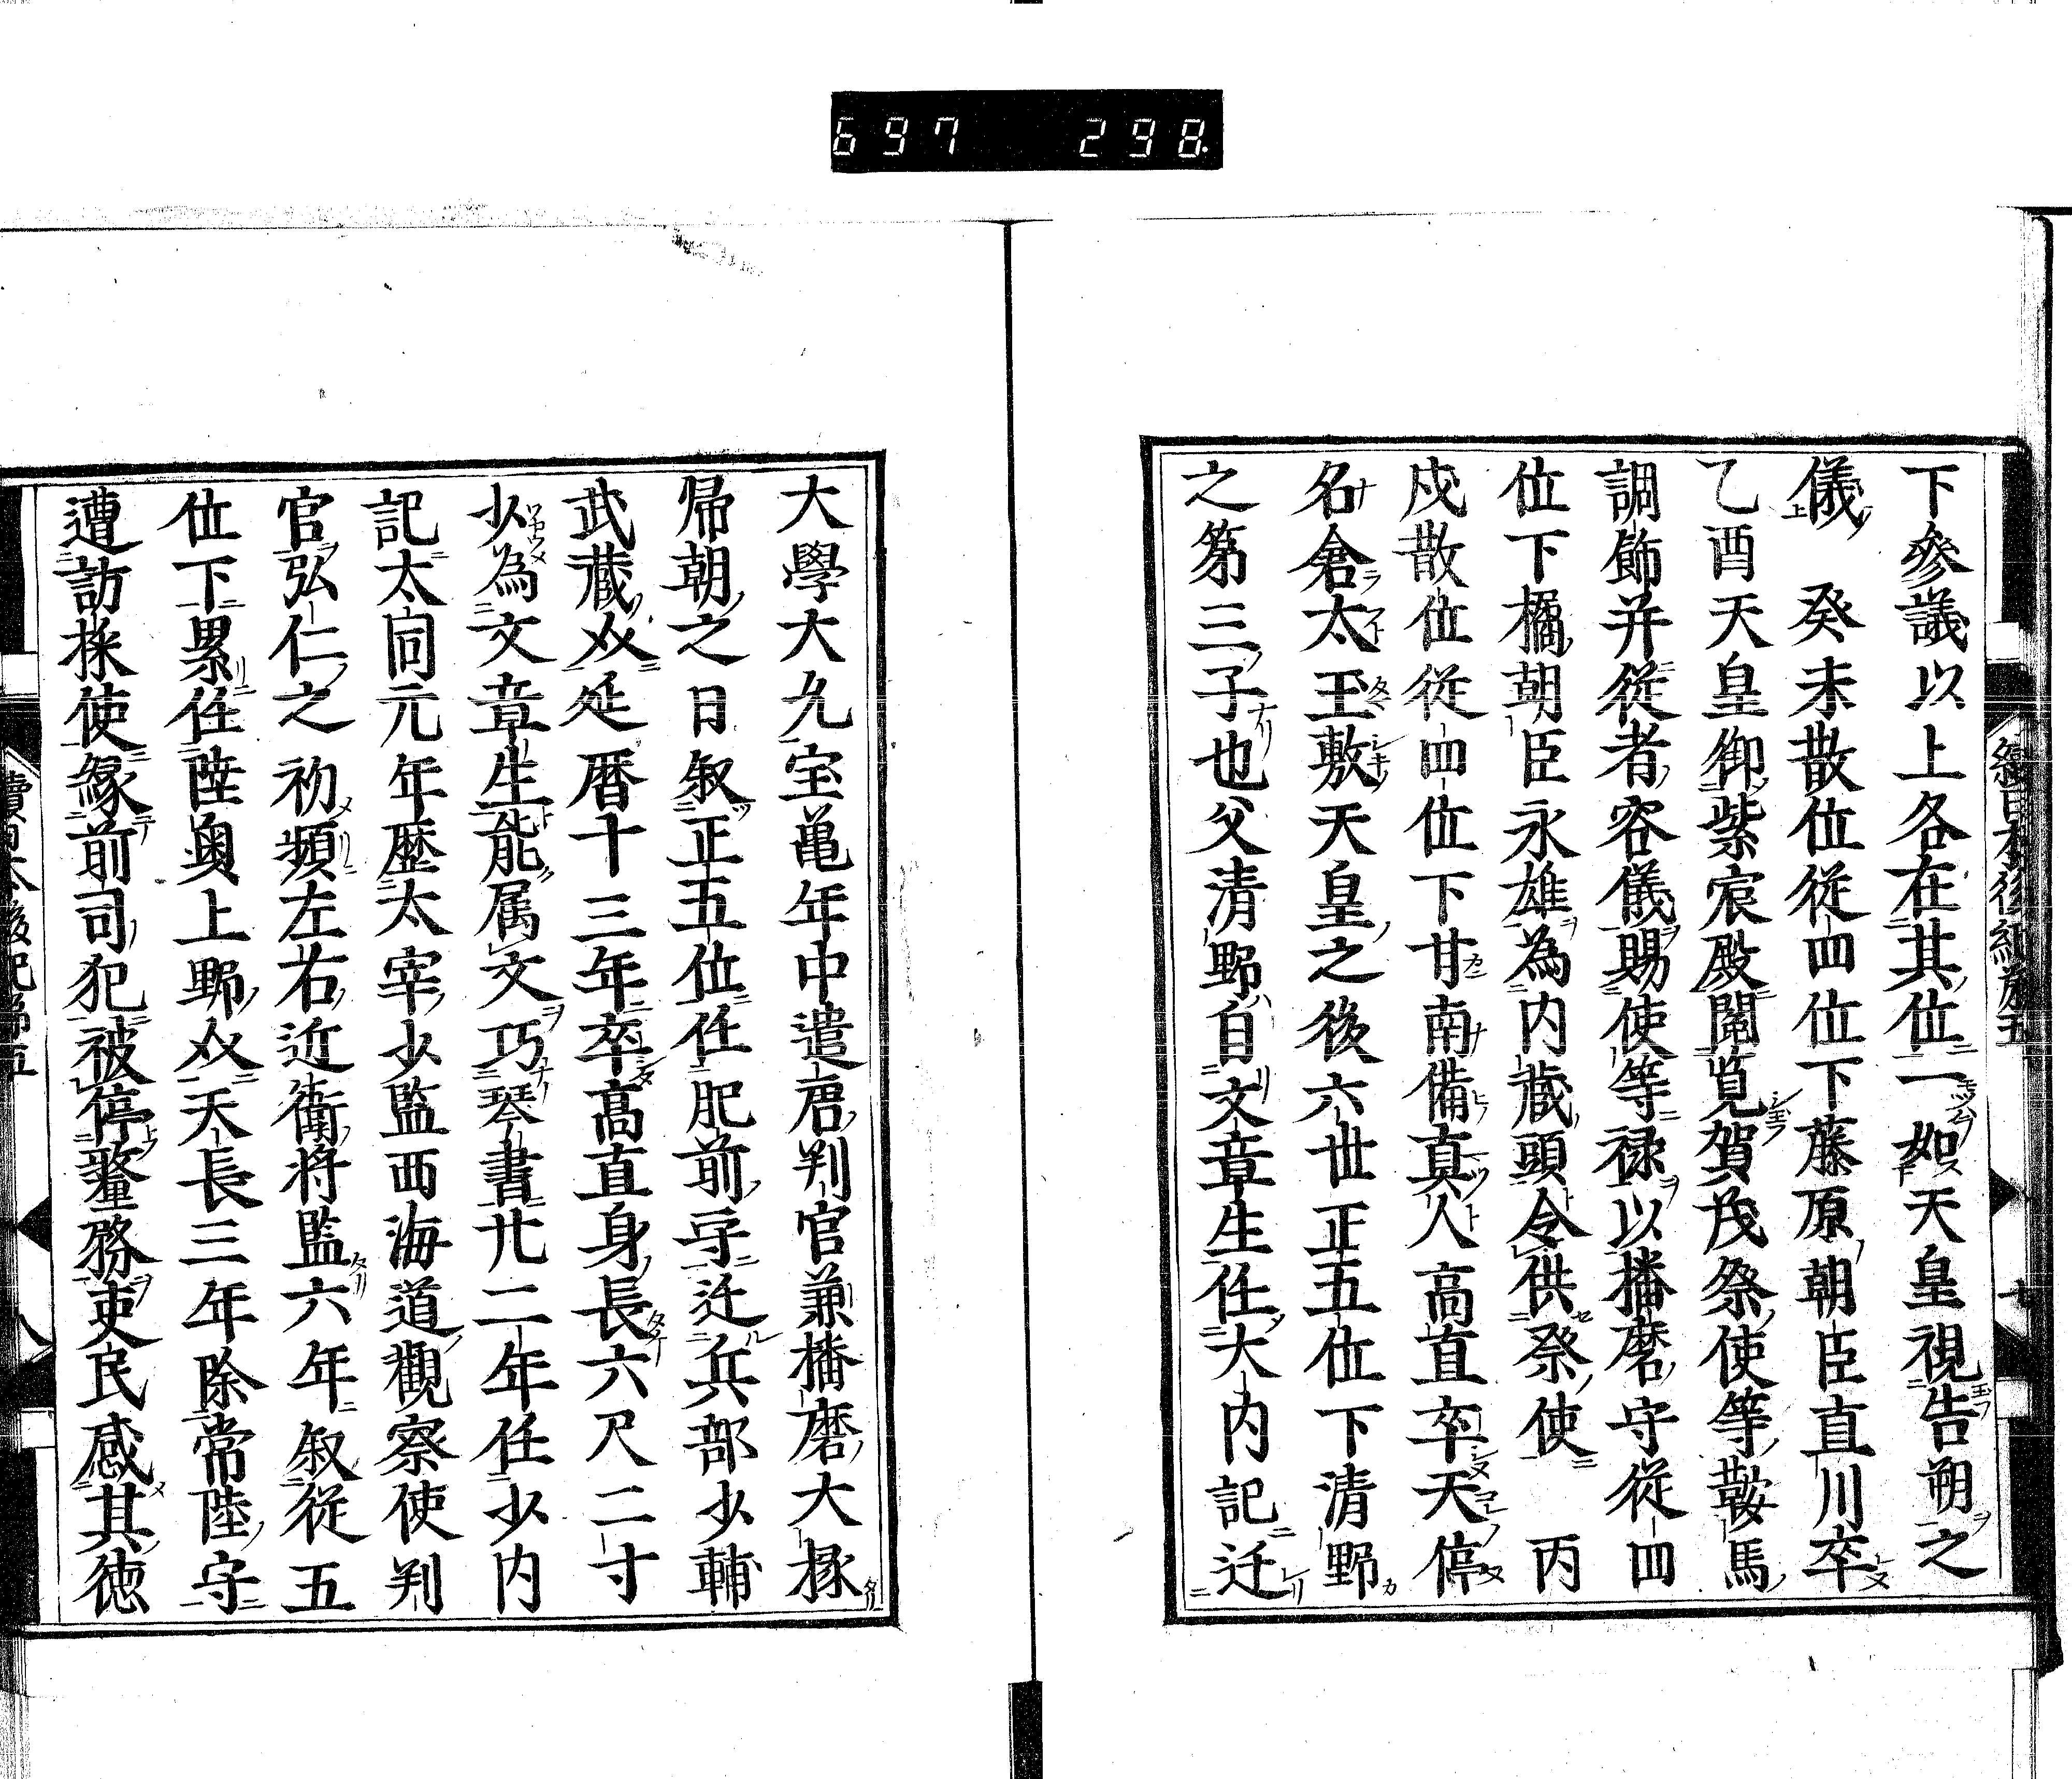 697 298
下參議以上各在其位一如天皇視告朔之
儀 癸未散位從四位下藤原朝臣直川卒
乙酉天皇御紫宸殿閲覧賀茂祭使等鞍馬
調餝并從者容儀賜使等禄以播磨守從四
位下橘朝臣永雄為内蔵頭令供祭使 丙
戌散位從四位下甘南備真人高直卒天停
名倉太玉敷天皇之後六世正五位下清野
之第三子也父清野自文章生任大内記迁
大學大允宝亀年中遣唐判官兼播磨大掾
帰朝之日叙正五位任肥前守迁兵部少輔
武蔵㸚延暦十三年卒高直身長六尺二寸
少為文章生能属文巧琴書廿二年任少内
記太同元年歴太宰少監西海道觀察使判
官弘仁之初頻左右近衛将監六年叙從五
位下累任陸奥上野㸚天長三年除常陸守
遭訪採使縁前司犯被停釐務吏民感其徳
續日本後紀第五
七
續日本後紀第五
八